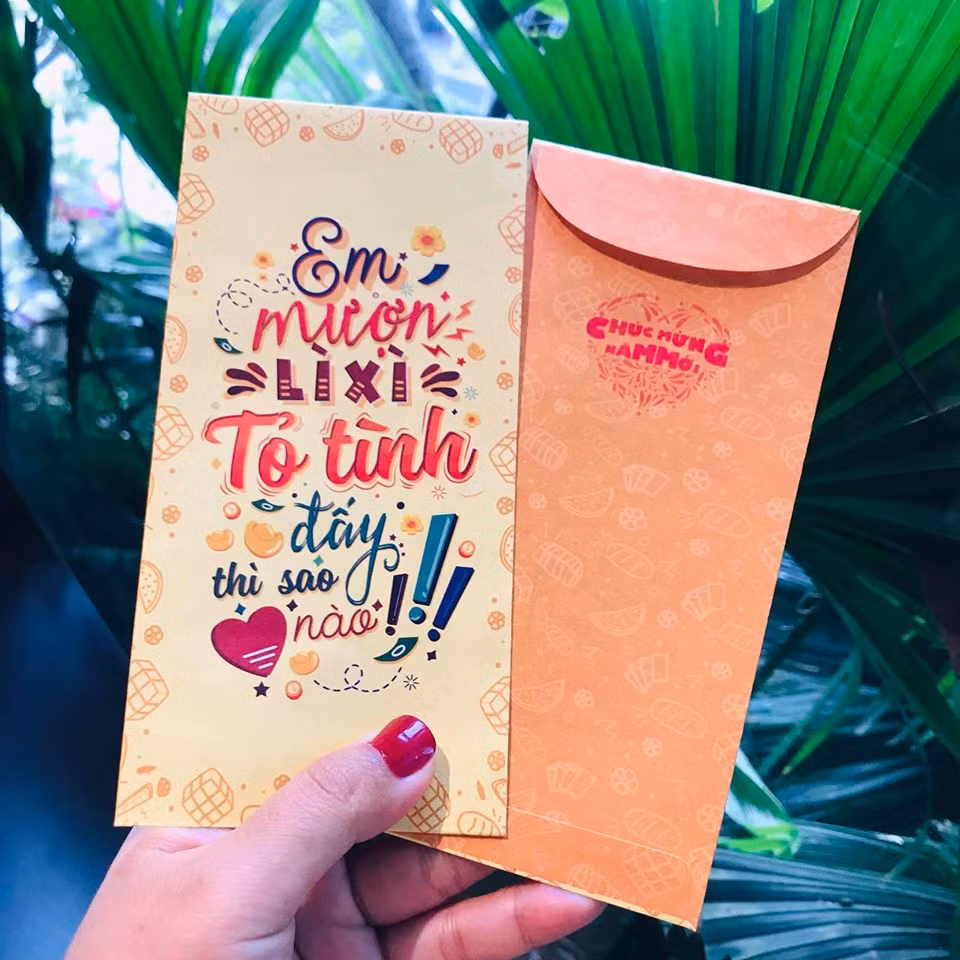 Em
mượn
LÌ XÌ
Tỏ tình
đấy
thì sao
nào!!!
CHÚC MỪNG
NĂM MỚI